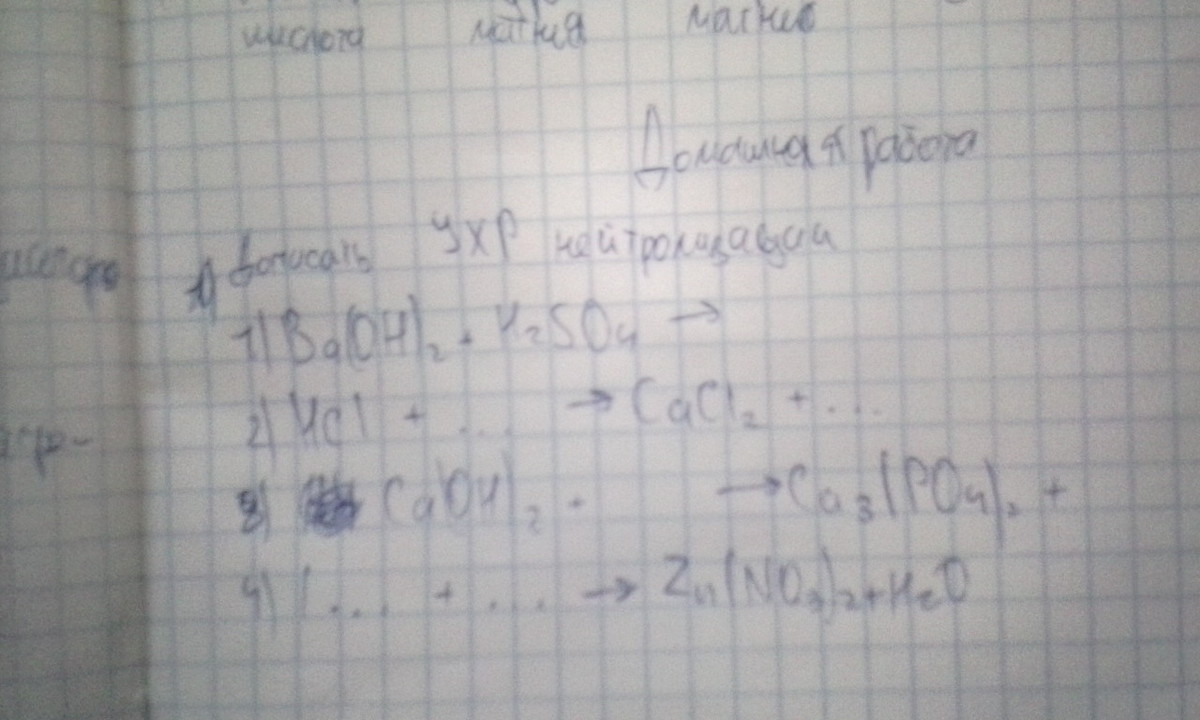 кислота магния магний
Домашняя работа
1) Дописать УХР нейтрализации
1) Ba(OH)₂ + H₂SO₄ →
2) HCl + ... → CaCl₂ + ...
3) Ca(OH)₂ + → Ca₃(PO₄)₂ +
4) ... + ... → Zn(NO₃)₂ + H₂O